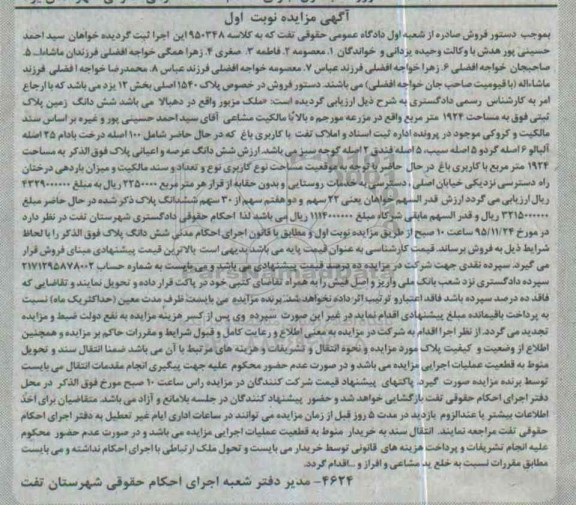 آگهی مزایده نوبت اول
بموجب دستور فروش صادره از شعبه اول دادگاه عمومی حقوقی تفت که به کلاسه ۹۵۰۳۴۸ این اجرا ثبت گردیده خواهان سید احمد
حسینی پور هدش با وکالت وحیده یزدانی و خواندگان ۱. معصومه ۲. فاطمه ۳. صغری ۴. زهرا همگی خواجه افضلی فرزندان ماشاالله ۵.
صاحبجان خواجه افضلی ۶. زهرا خواجه افضلی فرزند عباس ۷. معصومه خواجه افضلی فرزند عباس ۸. محمدرضا خواجه افضلی فرزند
ماشاءاله (با قیمومیت صاحب جان خواجه افضلی) می باشند. دستور فروش در خصوص پلاک ۱۵۴۰ اصلی بخش ۱۲ یزد می باشد که با ارجاع
امر به کارشناس رسمی دادگستری به شرح ذیل ارزیابی گردیده است: «ملک مزبور واقع در دهبالا می باشد شش دانگ زمین پلاک
ثبتی فوق به مساحت ۱۹۲۴ متر مربع واقع در مزرعه مورجم «بالا» با مالکیت مشاعی آقای سید احمد حسینی پور و غیره بر اساس سند
مالکیت و کروکی موجود در پرونده اداره ثبت اسناد و املاک تفت با کاربری باغ که در حال حاضر شامل ۱۰۰ اصله درخت بادام ۳۵ اصله
آلبالو ۶ اصله گردو ۵ اصله سیب، ۵ اصله فندق ۲ اصله گوجه سبز می باشد. ارزش شش دانگ عرصه و اعیانی پلاک فوق الذکر به مساحت
۱۹۲۴ متر مربع با کاربری باغ در حال حاضر با توجه به موقعیت مساحت نوع کاربری نوع و تعداد و سند مالکیت و میزان باردهی درختان
راه دسترسی نزدیکی خیابان اصلی، دسترسی به خدمات روستایی و بدون حقابه از قرار هر متر مربع ۲۲۵۰۰۰۰ ریال به مبلغ ۴۳۲۹۰۰۰۰۰۰
ریال ارزیابی می گردد ارزش قدر السهم خواهان یعنی ۲۲ سهم و دو هفتم سهم از ۳۰ سهم ششدانگ پلاک ذکر شده در حال حاضر مبلغ
۳۲۱۵۰۰۰۰۰۰ ریال و قدر السهم مابقی شرکاء مبلغ ۱۱۱۴۰۰۰۰۰۰ ریال می باشد لذا احکام حقوقی دادگستری شهرستان تفت در نظر دارد
در مورخ ۹۵/۱۱/۲۴ ساعت ۱۰ صبح از طریق مزایده نوبت اول و مطابق با قانون اجرای احکام مدنی شش دانگ پلاک فوق الذکر را با لحاظ
شرایط ذیل به فروش برساند. قیمت کارشناسی به عنوان قیمت پایه می باشد بدیهی است بالاترین قیمت پیشنهادی مبنای فروش قرار
می گیرد. سپرده نقدی جهت شرکت در مزایده ده درصد قیمت پیشنهادی می باشد. می بایست به شماره حساب ۲۱۷۱۲۹۵۸۷۸۰۰۲
سپرده دادگستری نزد شعب بانک ملی واریز و اصل فیش را به همراه تقاضای کتبی خود در پاکت قرار داده و تحویل نمایند و تقاضایی که
فاقد ده درصد سپرده باشد فاقد اعتبار و ترتیب اثر داده نخواهد شد. برنده مزایده می بایست ظرف مدت معین (حداکثر یک ماه) نسبت
به پرداخت باقیمانده مبلغ پیشنهادی اقدام نماید در غیر این صورت سپرده وی پس از کسر هزینه مزایده به نفع دولت ضبط و مزایده
تجدید می گردد. از نظر اجرا اقدام به شرکت در مزایده به معنی اطلاع و رعایت کامل و قبول شرایط و مقررات حاکم بر مزایده و همچنین
اطلاع از وضعیت و کیفیت پلاک مورد مزایده و نحوه انتقال و تشریفات و هزینه های مرتبط با آن می باشد ضمنا انتقال سند و تحویل
منوط به قطعیت عملیات اجرایی مزایده می باشد و در صورت عدم حضور محکوم علیه جهت پیگیری انجام مقدمات انتقال می بایست
توسط برنده مزایده صورت گیرد. پاکتهای پیشنهاد قیمت شرکت کنندگان در مزایده راس ساعت ۱۰ صبح مورخ فوق الذکر در محل
دفتر اجرای احکام حقوقی تفت بازگشایی خواهد شد و حضور پیشنهاد کنندگان در جلسه بلامانع و آزاد می باشد. متقاضیان برای اخذ
اطلاعات بیشتر یا عندالزوم بازدید در مدت ۵ روز قبل از زمان مزایده می توانند در ساعات اداری ایام غیر تعطیل به دفتر اجرای احکام
حقوقی تفت مراجعه نمایند. انتقال سند به خریدار منوط به قطعیت عملیات اجرایی مزایده می باشد و در صورت عدم حضور محکوم
علیه انجام تشریفات و پرداخت هزینه های قانونی توسط خریدار می بایست و تحول ملک ارتباطی با اجرای احکام نداشته و می بایست
مطابق مقررات نسبت به خلع ید مشاعی و افراز و ...اقدام گردد.
۴۶۲۴- مدیر دفتر شعبه اجرای احکام حقوقی شهرستان تفت